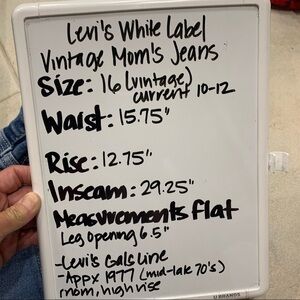 Levi's White Label
Vintage Mom's Jeans
Size: 16 (vintage)
current 10-12
Waist: 15.75"
Rise: 12.75"
Inseam: 29.25"
Measurements flat
Leg Opening 6.5"
- Levi's Gals Line
- Appx 1977 (mid-late 70's)
mom, high rise
U BRANDS